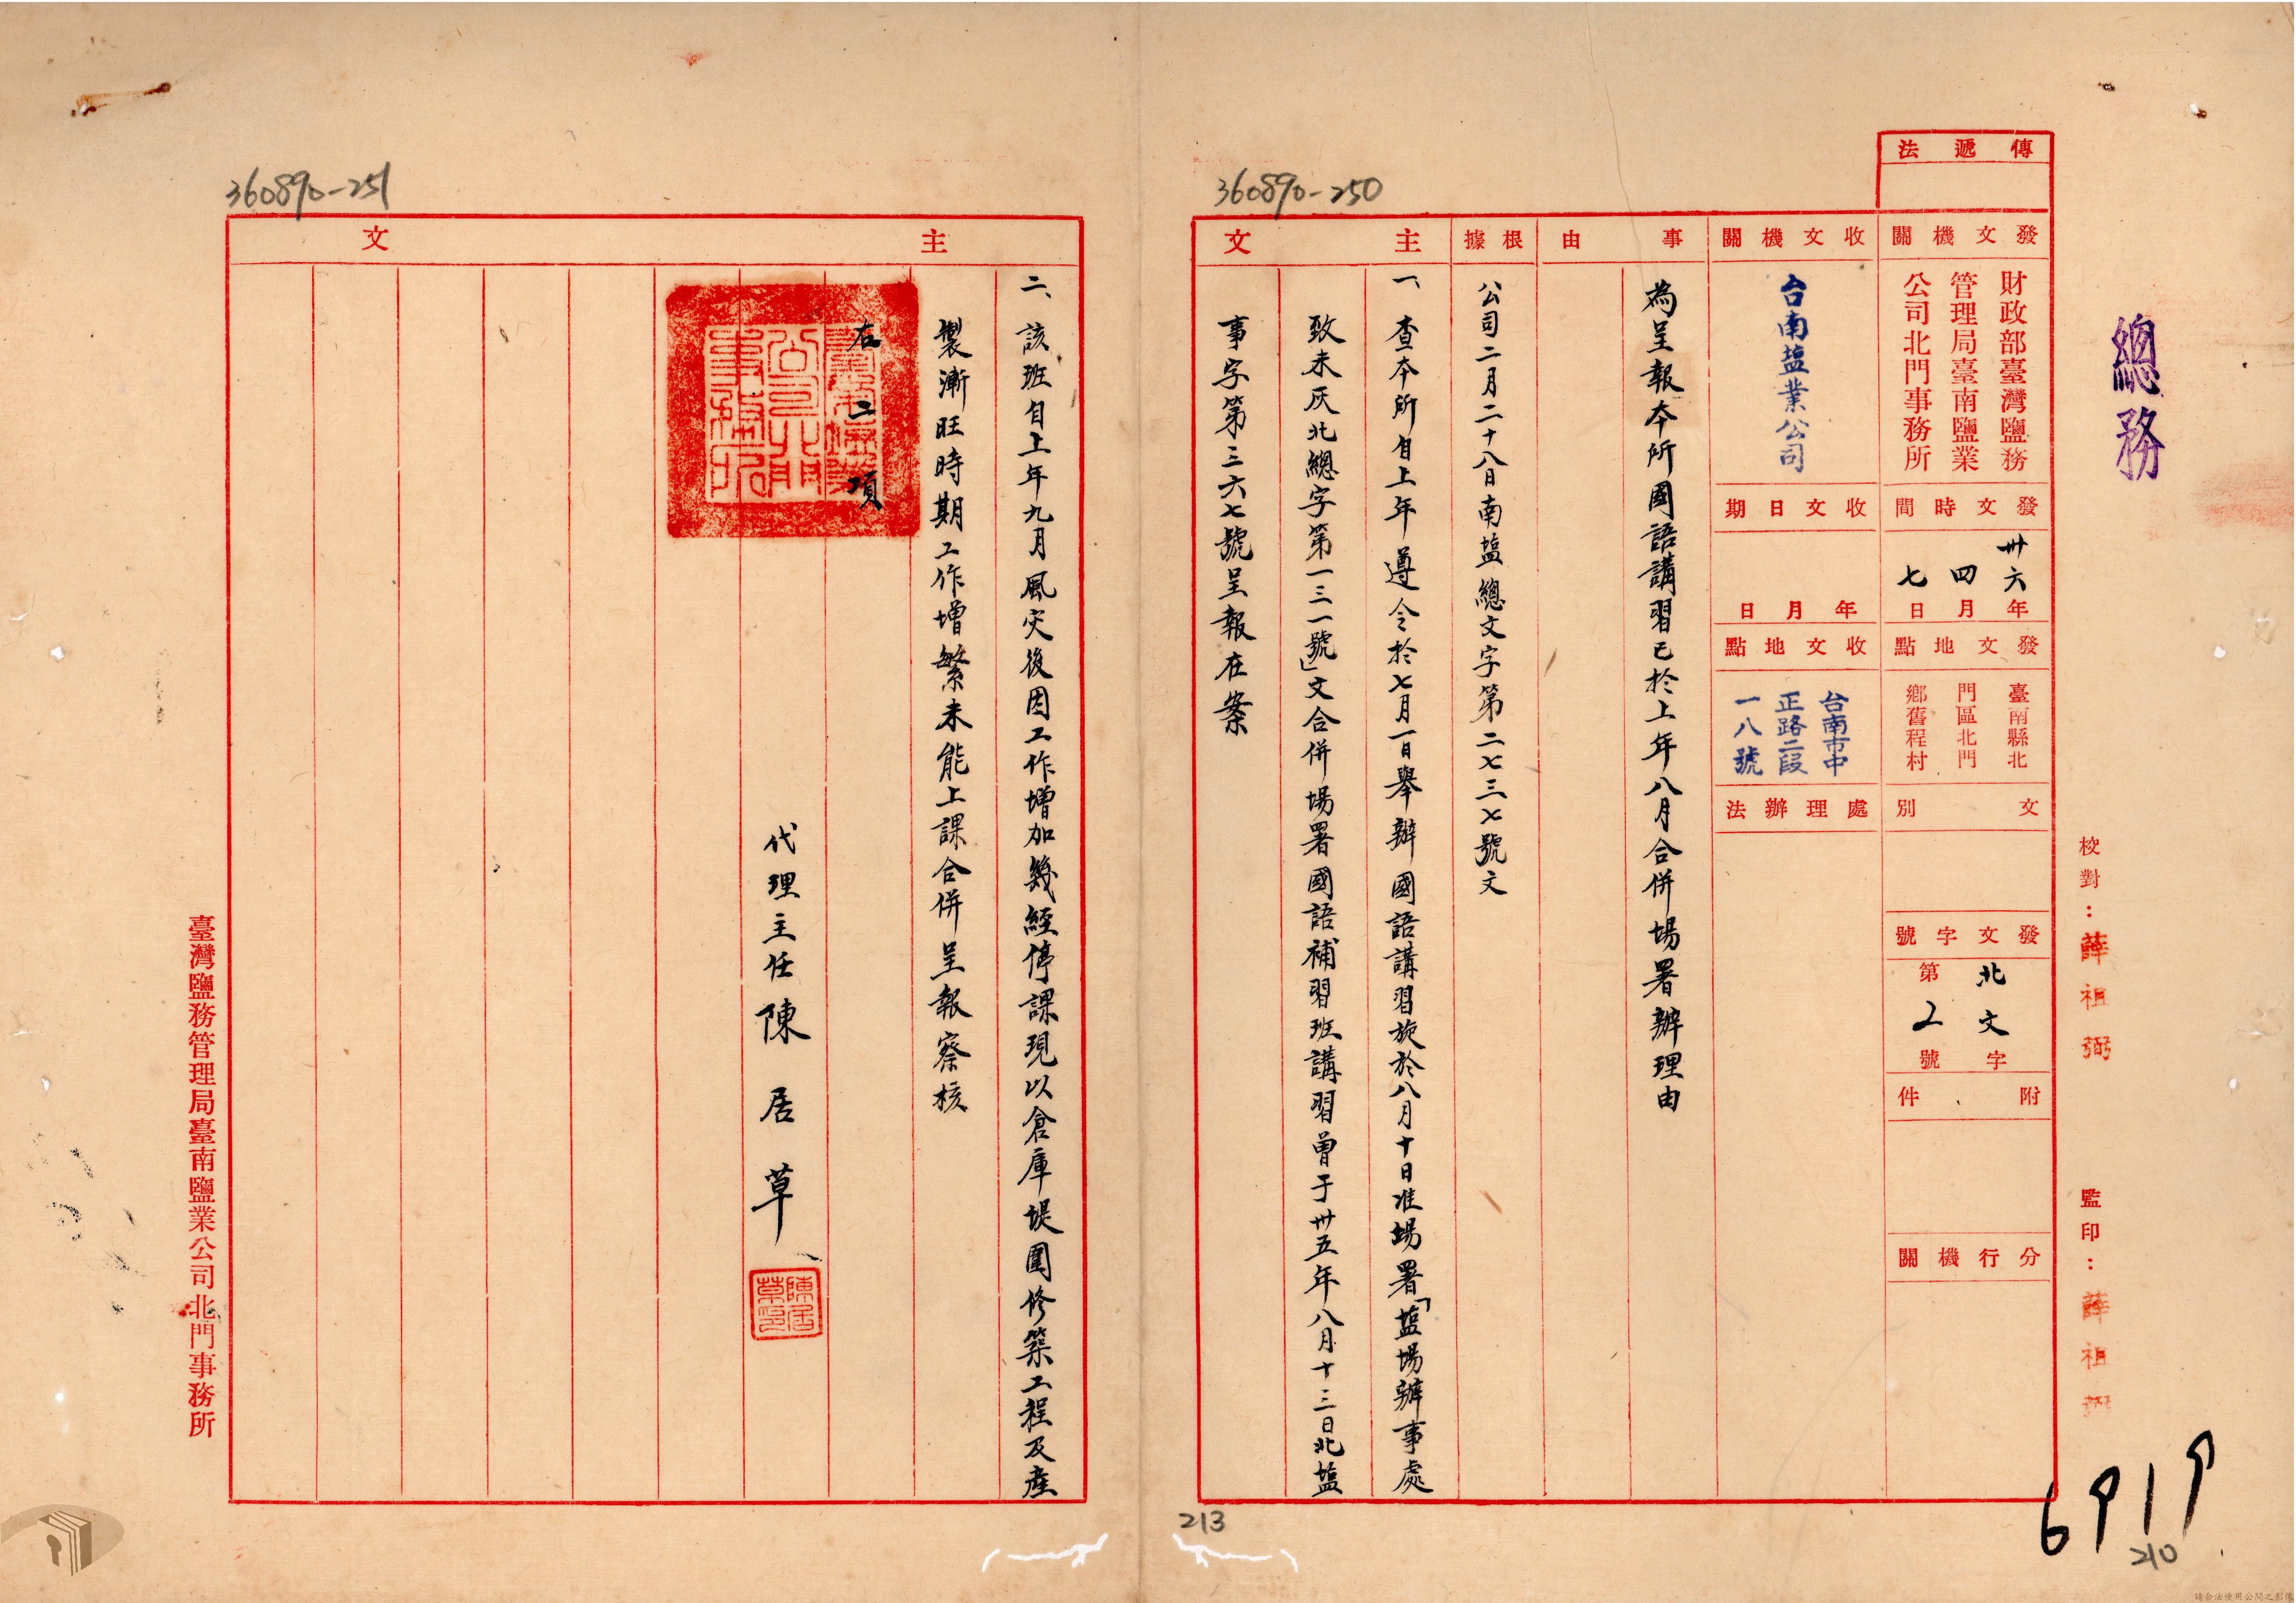 總務
校對：薛祖弼
監印：薛祖弼
傳遞法
發文機關
財政部臺灣鹽務
管理局臺南鹽業
公司北門事務所
發文時間
卅六年
四月
七日
發文地點
臺南縣北
門區北門
鄉舊程村
文別
發文字號
北文字
第2號
附件
分行機關
收文機關
台南塩業公司
收文日期
年月日
收文地點
台南市中
正路二段
一八號
處理辦法
事由
為呈報本所國語講習已於上年八月合併場署辦理由
根據
公司二月二十八日南塩總文字第二七三七號文
主文
一、查本所自上年遵令於七月一日舉辦國語講習旋於八月十日准場署「塩場辦事處
致未灰北總字第一三一號」文合併場署國語補習班講習曾于卅五年八月十三日北塩
事字第三六七號呈報在案
360890-250
213
6919
210
主文
二、該班自上年九月風災後因工作增加幾經停課現以倉庫堤圍修築工程及產
製漸旺時期工作增繁未能上課合併呈報察核
右二項
代理主任陳居草
陳居草印
臺灣鹽務管理局臺南鹽業公司北門事務所
360890-251